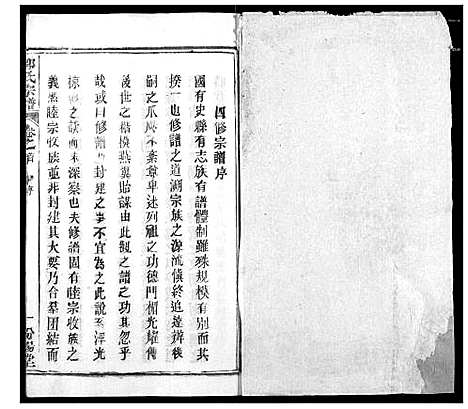 四修宗譜序
國有史縣有志族有譜體制雖殊規模有別而其
揆一也修譜之道溯宗族之源流愼終追遠辨後
嗣之爪瓞不紊尊卑述列祖之功德門楣光燿傳
後世之楷模燕翼貽謀由此觀之譜之功其忽乎
哉或曰修譜乃封建之事不宜為之此說乃浮光
掠之談而未深察也夫修譜固有睦宗收族之
義然睦宗收族並非封建其大要乃合羣團結而
氏宗譜
卷之首
一
汾陽堂